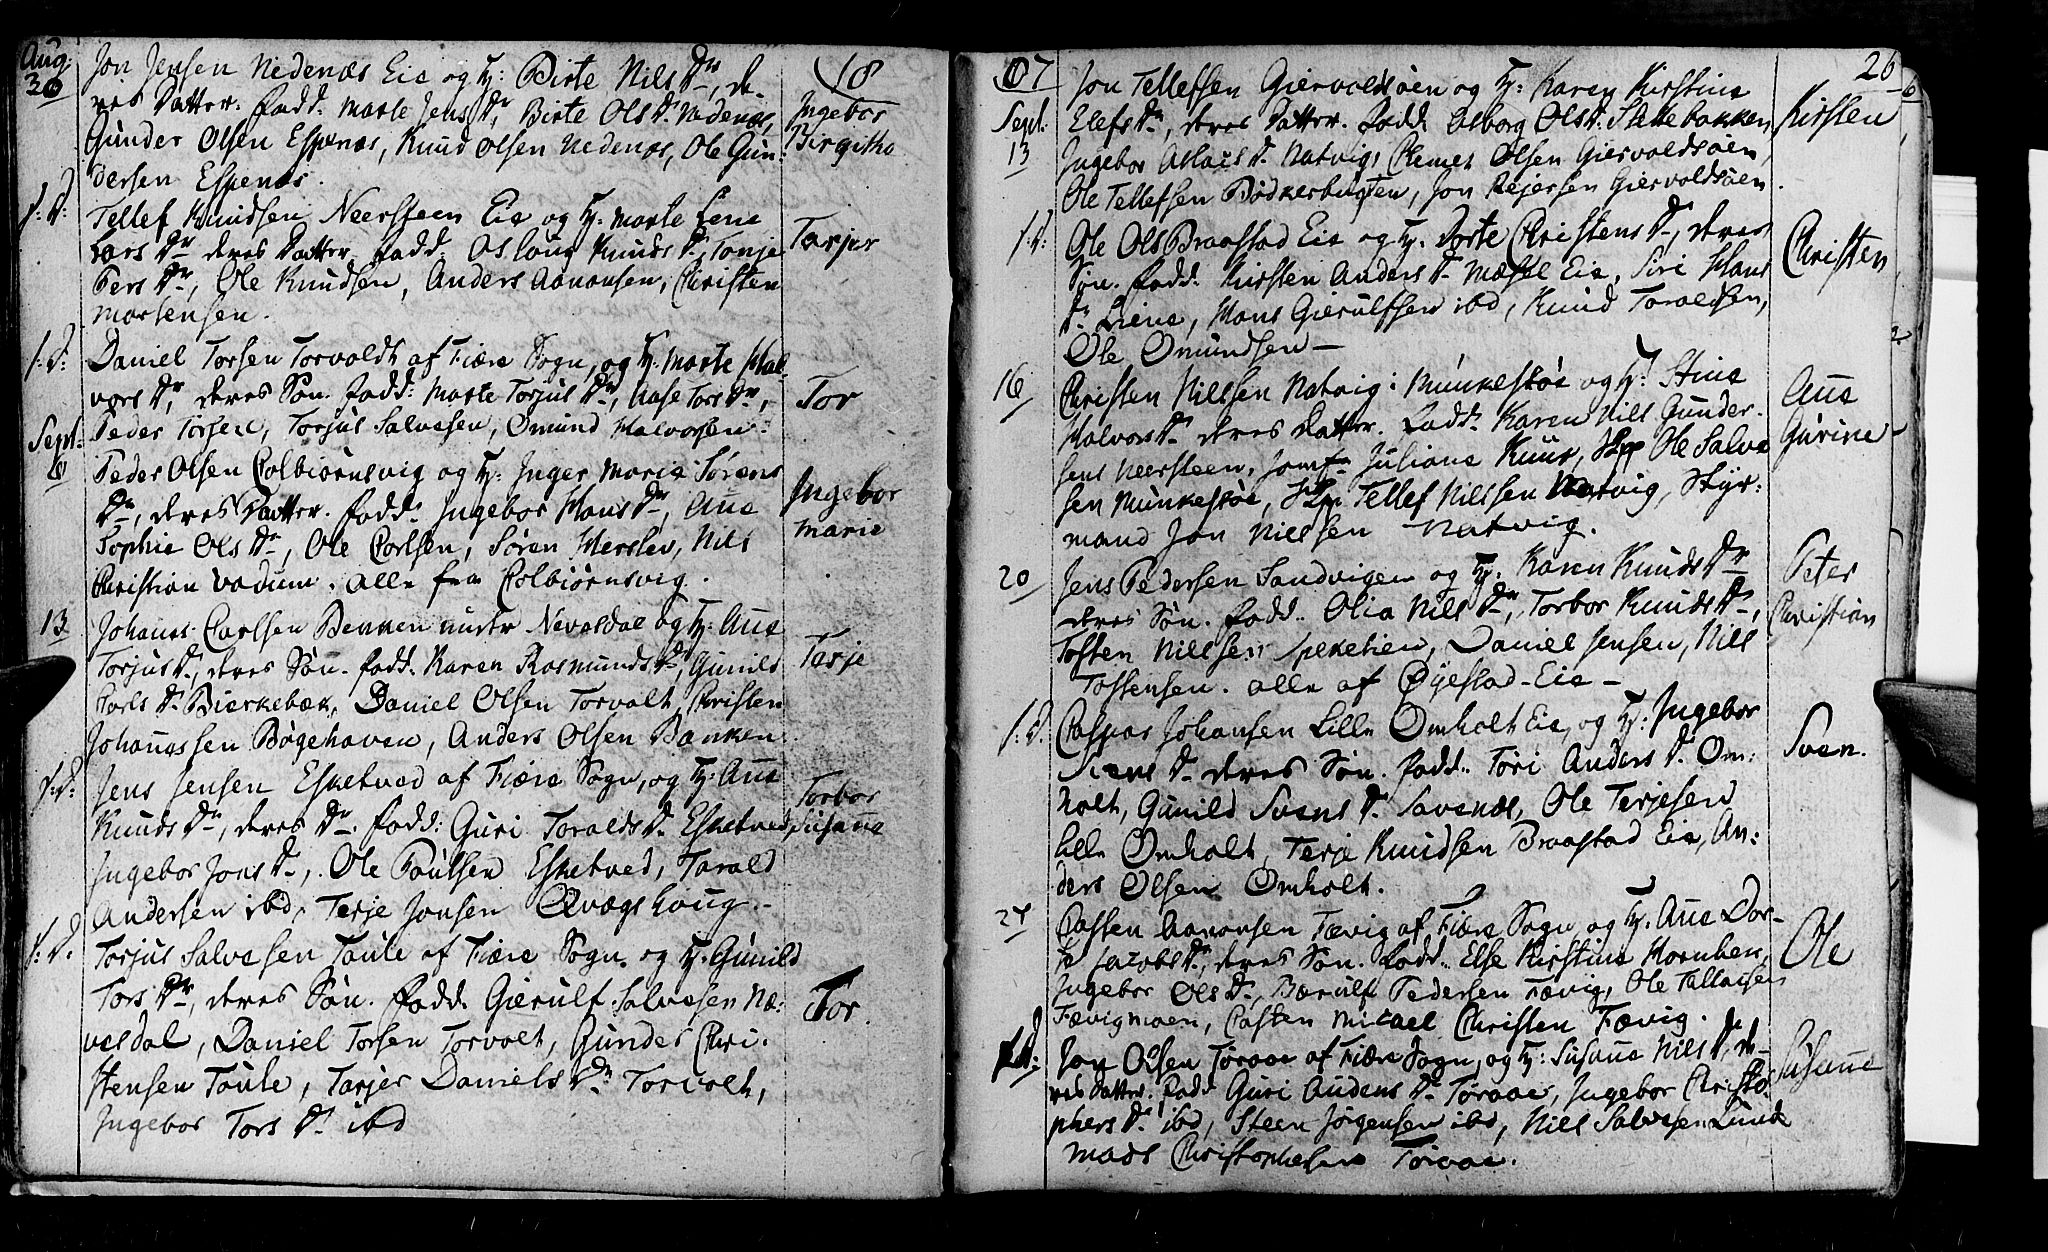 Aug: 30 Jon Jensen Nedenæs Eie og H: Birte Nils Dr, de- 18
res Datter. fadd. Marte Jens Dr, Birte Ols Dr Nedenæs, Ingebor
Gunder Olsen Espenæs, Knud Olsen Nedenæs, Ole Gun- Birgitha
dersen Espenæs.
s: D: Tellef Knudsen Neersteen Eie og H: Marte Lene
Lars Dr deres Datter. fadd. Aslaug Knuds Dr, Tonje Tarjer
Pers Dr, Ole Knudsen, Anders Aanonsen, Christen
Mortensen.
s: D: Daniel Torsen Torvoldt af Fiære Sogn, og H: Marte Hal-
vors Dr, deres Søn. fadd: Marte Torjus Dr, Aase Tors Dr, Tor
Sept. Peder Torsen, Torjus Salvesen, Omund Halvorsen.
Peder Olsen Colbiørnsvig og H: Inger Marie Sørens
Dr, deres Datter. fadd. Ingebor Hans Dr, Ane Ingebor
Sophie Ols Dr, Ole Carlsen, Søren Herslev, Nils Marie
Christian Vadum. alle fra Colbiørnsvig.
13 Johans Carlsen Benken under Nevoldal og H: Ane
Torjus Dr, deres Søn. fadd. Karen Rosmunds Dr, Gunild Terje
Carls Dr Bierkebæk, Daniel Olsen Torvolt, Christen
Johannssen Bøgehaven, Anders Olsen Banken.
s: D: Jens Jensen Esketved af Fiære Sogn, og H: Ane
Knuds Dr, deres Dr. fadd: Guri Toralds Dr Esketved, Torbor Susane
Ingebor Jons Dr, Ole Poulsen Esketved, Tarald
Andersen ibd, Terje Jonsen Qvægshoug.
s: D. Torjus Salvesen Toule af Fiære Sogn og H: Gunild
Tors Dr, deres Søn. fadd. Gierulf Salvesen Næ- Tor.
veldal, Daniel Torsen Torvolt, Gunder Chri-
stensen Toule, Tarjer Daniels Dr Torvolt,
Ingebor Tors Dr ibd
07 26
Sept. 13 Jon Tellefsen Giervoldsøen og H: Karen Kirstine
Elefs Dr, deres Datter. fadd. Aalborg Ols Dr Slettebakken Kirsten
Ingebor Aslacs Dr Natvig, Clemet Olsen Giervoldsøen,
Ole Tellefsen Bødkerbugten, Jon Rejersen Giervoldsøen.
s: D: Ole Ols Braastad Eie og H. Dorte Christens Dr, deres
Søn. fadd. Kirsten Anders Dr Mæssel Eie, Siri Hans Christen
Dr Liene, Hans Gierulfsen ibd, Knud Toraldsen,
Ole Omundsen
16 Christen Nilssen Natvig i Munkesøe og H: Stine Ane
Halvors Dr deres Datter. fadd. Karen Nils Gunder- Gurine
sens Neersteen, Jomf. Juliane Kuur, Skp Ole Salve
sen Munkesøe, Skp Tellef Nilssen Natvig, Styr-
mand Jon Nilssen Natvig.
20 Jens Pedersen Sandvigen og H. Karen Knuds Dr Peter
deres Søn. fadd. Olia Nils Dr, Torbor Knuds Dr, Christian
Tosten Nilssen Speketien, Daniel Jensen, Nils
Tostensen. alle af Øyestad-Eie
s: D. Caspar Johansen Lille Omholt Eie, og H: Ingebor
Svens Dr deres Søn. fadd. Tori Anders Dr Om- Sven.
holt, Gunild Svens Dr Savenæs, Ole Terjesen
Lille Omholt, Terje Knudsen Braastad Eie, An-
ders Olsen Omholt.
27 Casten Aanonsen Fævig af Fiære Sogn og H. Ane Dor-
te Jacobs Dr, deres Søn. fadd. Else Kirstine Hornben, Ole
Ingebor Ols Dr, Bærulf Pedersen Fævig, Ole Tallacsen
Fævigmoen, Casten Micael Christen Fævig.
s: D: Jon Olsen Toraae af Fiære Sogn, og H: Susane Nils Dr, de-
res Datter. fadd Guri Audens Dr Toraae, Ingebor Christo- Susane
phers Dr ibd, Steen Jørgensen ibd, Nils Salvesen Lund
Mads Christophersen Toraae.